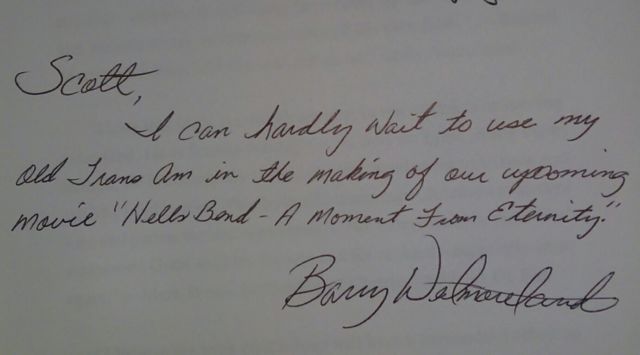 Scott,
I can hardly wait to use my
old Trans Am in the making of our upcoming
movie "Nells Bend - A Moment From Eternity."
Barry Welmoreland